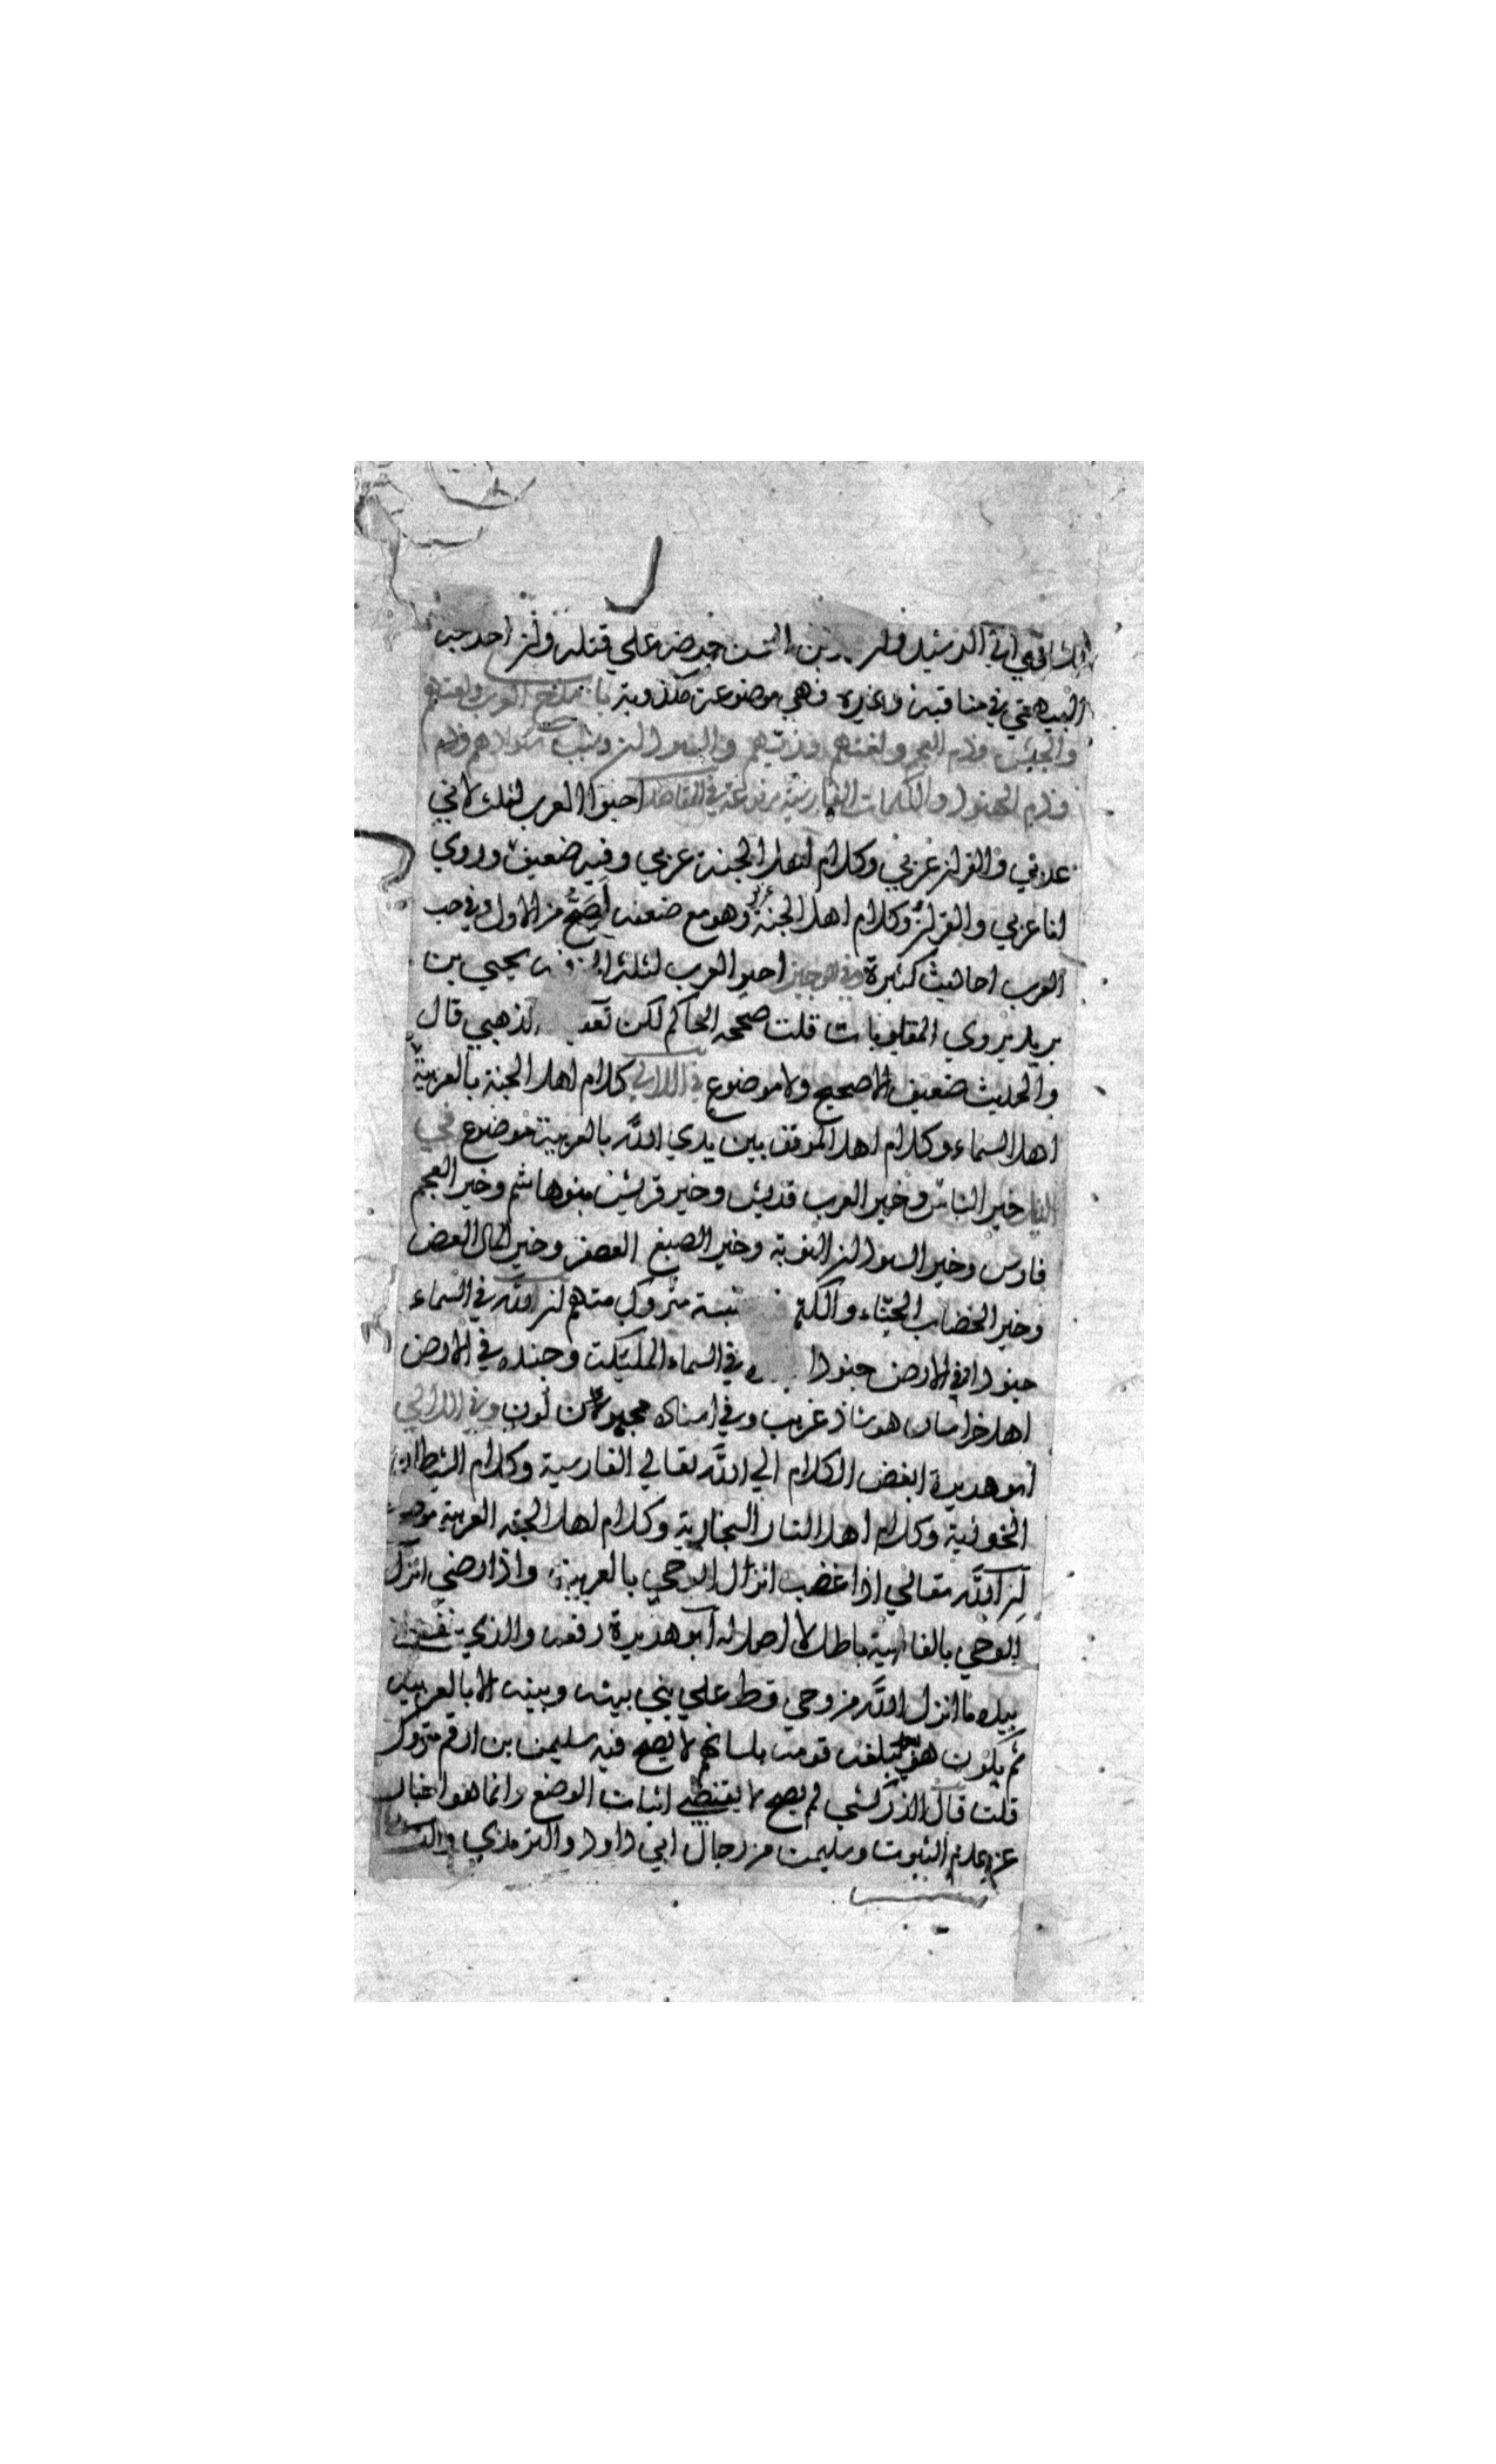 الشافعي الي الرشيد وان بن الحسن حرضه علي قتله وان اخرجه
البيهقي في مناقبه وغيره فهي موضوعة مكذوبة باب مدح العرب ولغتهم
والجيش وذم العجم ولغتهم وزيهم والسودان
وذم الهنود والكلمات الفارسية في المقاصد احبوا العرب لثلث لاني
عربي والقران عربي وكلام اهل الجنة عربي وفيه ضعيف وروي
انا عربي والقران وكلام اهل الجنة عربي وهو مع ضعفه اصح من الاول وفي حب
العرب احاديث كثيرة في الوجيز احبوا العرب لثلث يحيي بن
بريد يروي المقلوبات قلت صححه الحاكم لكن الذهبي قال
والحديث ضعيف لا صحيح ولا موضوع في اللالي كلام اهل الجنة بالعربية
اهل السماء وكلام اهل الموقف بين يدي الله بالعربية موضوع في
خير الناس العرب وخير العرب قريش وخير قريش بنوهاشم وخير العجم
فارس وخير السودان النوبة وخير الصبغ العصفر وخير المال العقر
وخير الخضاب الحناء والكتم متروك متهم ان لله في السماء
جنودا وفي الارض جنودا في السماء الملئكة وجنده في الارض
اهل خراسان هو شاذ غريب وفي اسناده وفي اللالي
ابو هريرة ابغض الكلام الي الله تعالي الفارسية وكلام الشيطان
الخوزية وكلام اهل النار البخارية وكلام اهل الجنة العربية موضوع
ان الله تعالي اذا غضب انزل الوحي بالعربية واذا رضي انزل
الوحي بالفارسية باطل لا اصل له ابو هريرة رفعه والذي نفسي
بيده ما انزل الله من وحي قط علي نبي بينه وبينه الا بالعربية
ثم يكون هو يبلغه قومه بلسانهم لا يصح فيه سليمن بن ارقم متروك
قلت قال الزركشي لم يصح لا يقتضي اثبات الوضع وانما هو اخبار
عن عدم الثبوت وسليمن من رجال ابي داود والترمذي